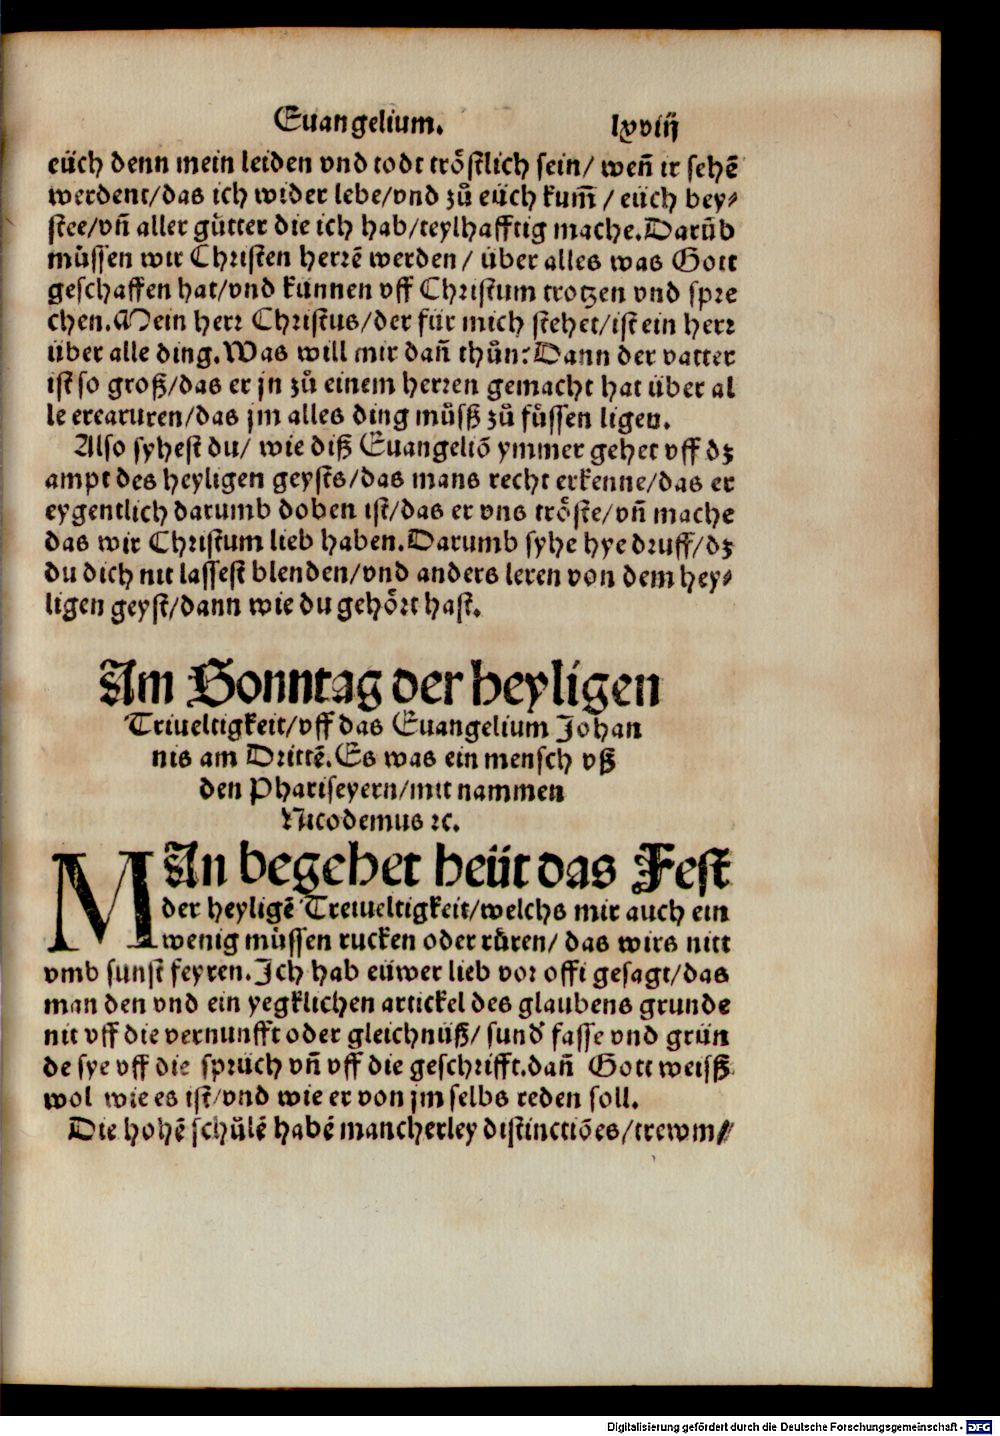 Euangelium. lxviij
eüch denn mein leiden vnd todt tröstlich sein/ weñ ir sehē
werdent/das ich wider lebe/vnd zů eüch kum̄ / eüch bey⸗
stee/vñ aller gůtter die ich hab/teylhafftig mache.Darūb
müssen wir Christen herrē werden/ über alles was Gott
geschaffen hat/vnd künnen vff Christum trotzen vnd spre
chen.Mein herr Christus/der für mich stehet/ist ein herr
über alle ding.Was will mir dañ thůn? Dann der vatter
ist so groß/das er jn zů einem herren gemacht hat über al
le creaturen/das jm alles ding můsß zů fůssen ligen.
Also syhest du/ wie diß Euangeliō ymmer gehet vff dz
ampt des heyligen geysts/das mans recht erkenne/das er
eygentlich darumb doben ist/das er vns tröste/vñ mache
das wir Christum lieb haben.Darumb syhe hye druff/dz
du dich nit lassest blenden/vnd anders leren von dem hey⸗
ligen geyst/dann wie du gehört hast.
Am Sonntag der heyligen
Triueltigkeit/vff das Euangelium Johan
nis am Drittē.Es was ein mensch vß
den Phariseyern/mit nammen
Nicodemus ⁊c.
MAn begehet heüt das Fest
der heyligē Treiueltigkeit/welchs mir auch ein
wenig müssen rucken oder růren/ das wirs nitt
vmb sunst feyren.Ich hab eüwer lieb vor offt gesagt/das
man den vnd ein yegklichen artickel des glaubens grunde
nit vff die vernunfft oder gleichnüß/ sund' fasse vnd grün
de sye vff die sprüch vñ vff die geschrifft.dañ Gott weisß
wol wie es ist/vnd wie er von jm selbs reden soll.
Die hohē schůlē habē mancherley distinctiōes/trewm⸗
Digitalisierung gefördert durch die Deutsche Forschungsgemeinschaft - DFG